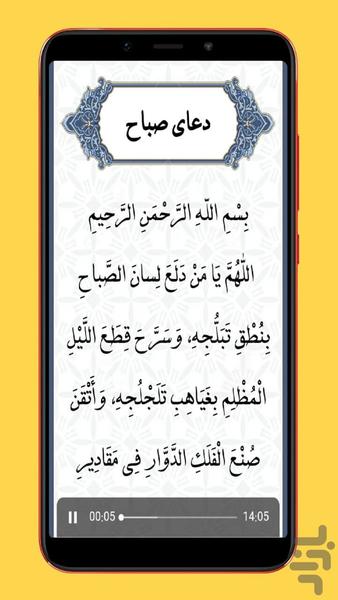 دعای صباح
بِسْمِ اللّهِ الرَّحْمَنِ الرَّحِیمِ
اللّهُمَّ یَا مَنْ دَلَعَ لِسانَ الصَّباحِ
بِنُطْقِ تَبَلُّجِهِ، وَسَرَّحَ قِطَعَ اللَّیْلِ
الْمُظْلِمِ بِغَیَاهِبِ تَلَجْلُجِهِ، وَأَتْقَنَ
صُنْعَ الْفَلَكِ الدَّوَّارِ فِی مَقَادِیرِ
00:05 14:05
بازار